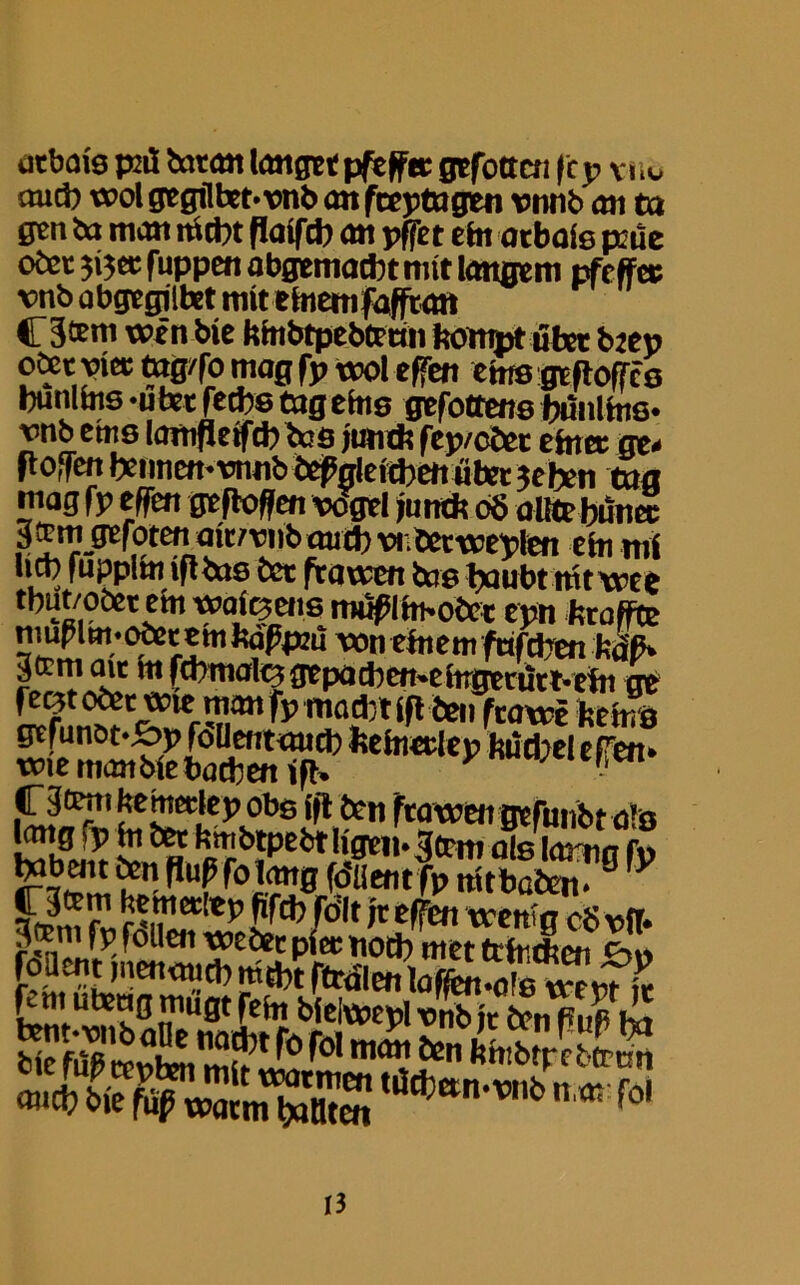 arbais prü daran langer pfeffer gesotten sey vnd
auch wol gegilbet·vnd an freytagen vnnd an ta
gen da man nicht flaisch an ysset ein arbais prüe
oder ziser suppen abgemacht mit langem pfeffer
vnd abgegilbet mit einem saffran
⸿ Item wen die kindtpedterin kompt über drey
oder vier tag/so mag sy wol essen eins gestossēs
hünlins·über sechs tag eins gesottens hünlins·
vnd eins lamfleisch das junck sey/oder einer ge⸗
stossen hennen·vnnd deßgleichen über zehen tag
mag sy essen gestossen vogel junck oď allte hüner
Item gesoten air/vnd auch vnderweylen ein mi
lich süpplin ist das der frawen das haubt nit wee
thut/oder ein waiczens müßlin·oder eyn kraffte
müßlin·oder ein käßprü von einem frischen käß·
Item air in schmalcz gepachen·eingerürt·ein ge
seczt oder wie man sy macht ist den frawē keins
gesundt·Sy söllent auch keinerley küchel essen·
wie man die bachen ist·
⸿ Item keinerley obs ist den frawen gesundt als
lang sy in der kindtpedt ligen· Item als lanng sy
habent den fluß so lang söllent sy nit baden·
⸿ Item keinerley fisch sölt jr essen wenig oď vil·
Item sy söllen weder pier noch met trincken Sy
söllent jnen auch nicht strälen lassen·als weyt jr
sein überig mügt sein dielweyl vnd jr den fluß ha
bent·vnd alle nacht so sol man den kindtpedterin
die füß reyben mit warmen tüchern·vnd man sol
auch die füß warm hallten
13